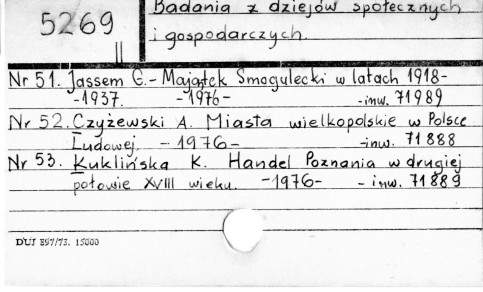 5269
II
Badania z dziejów społecznych
i gospodarczych.
Nr 51. Jassem G. - Majątek Smogulecki w latach 1918-
-1937. -1976- -inw. 71989
Nr 52. Czyżewski A. Miasta wielkopolskie w Polsce
Ludowej. - 1976- -inw. 71888
Nr 53. Kuklińska K. Handel Poznania w drugiej
połowie XVIII wieku. -1976- - inw. 71889
DUJ 897/73. 15000